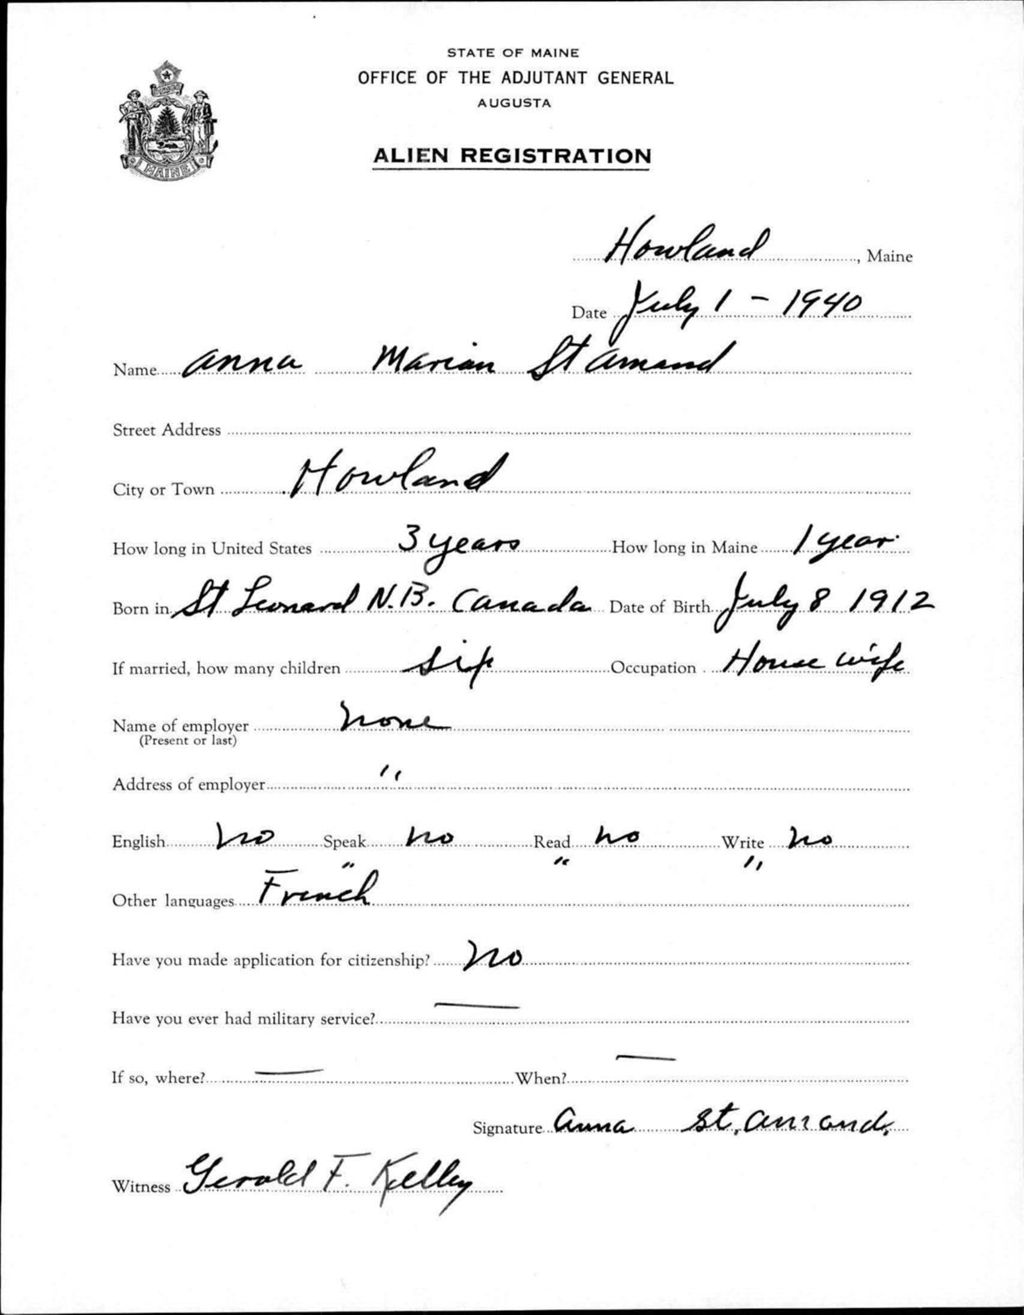 STATE OF MAINE
OFFICE OF THE ADJUTANT GENERAL
AUGUSTA
ALIEN REGISTRATION
MAINE
Howland, Maine
Date July 1 - 1940
Name Anna Marian St Amand
Street Address
City or Town Howland
How long in United States 3 years How long in Maine 1 year.
Born in St Leonard N.B. Canada Date of Birth July 8 1912
If married, how many children six Occupation House wife
Name of employer none
(Present or last)
Address of employer "
English no Speak no Read no Write no
" " "
Other languages French
Have you made application for citizenship? no
Have you ever had military service? —
If so, where? — When? —
Signature Anna St. Amand.
Witness Gerald F. Kelley